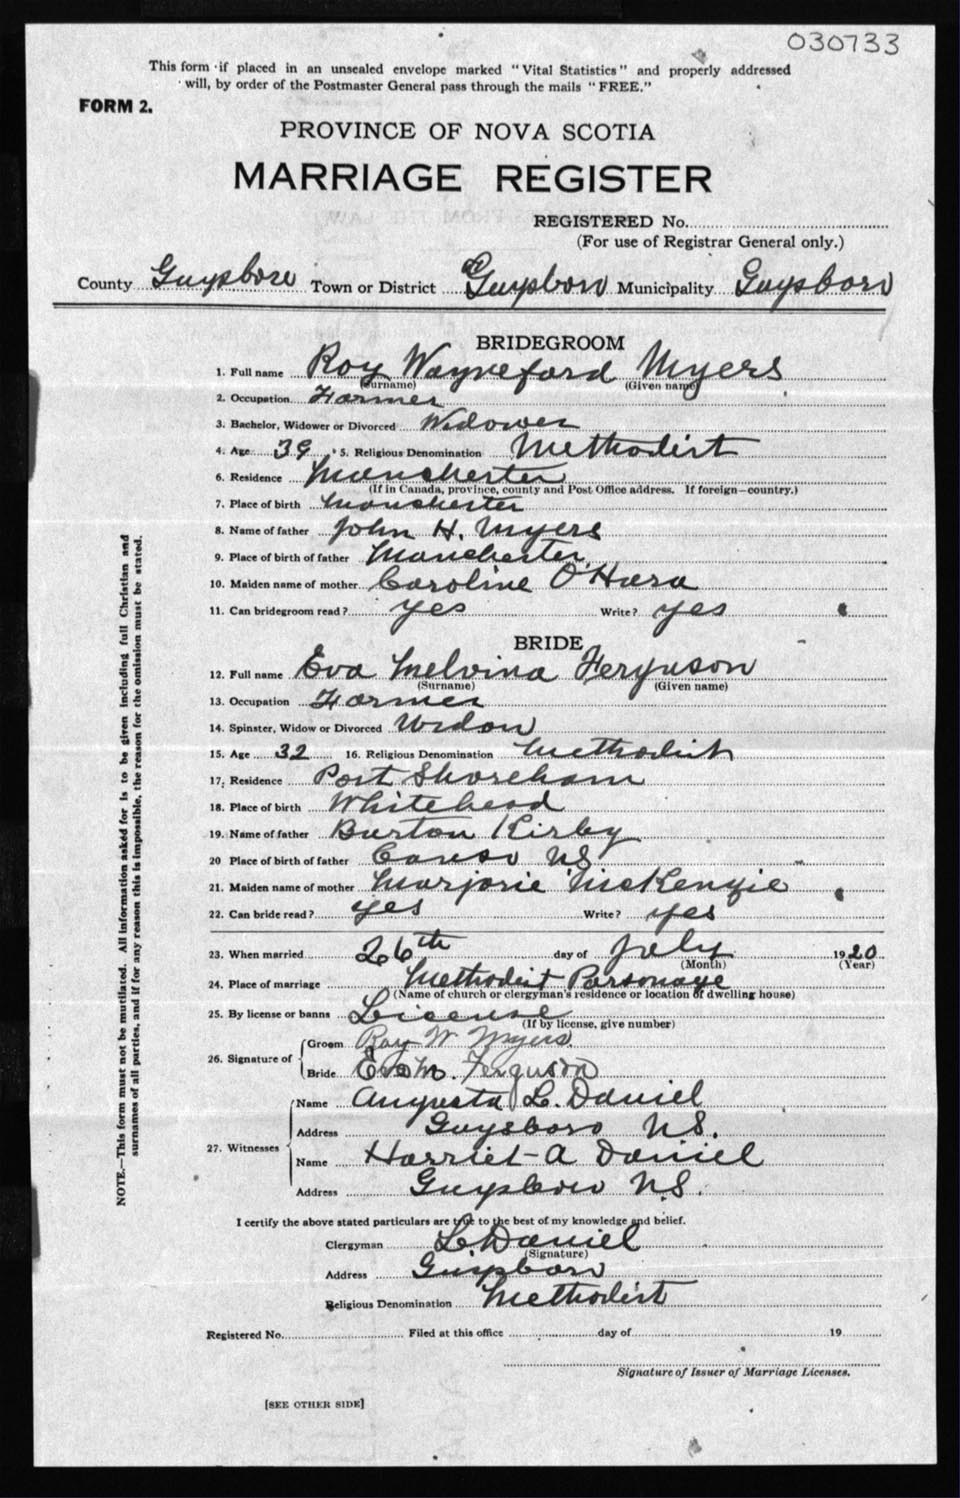 030733
This form if placed in an unsealed envelope marked "Vital Statistics" and properly addressed
will, by order of the Postmaster General pass through the mails "FREE."
FORM 2.
PROVINCE OF NOVA SCOTIA
MARRIAGE REGISTER
REGISTERED No.
(For use of Registrar General only.)
County Guysboro Town or District Guysboro Municipality Guysboro
BRIDEGROOM
1. Full name Roy Wayneford Myers
(Surname) (Given name)
2. Occupation Farmer
3. Bachelor, Widower or Divorced Widower
4. Age 39 5. Religious Denomination Methodist
6. Residence Manchester
(If in Canada, province, county and Post Office address. If foreign—country.)
7. Place of birth Manchester
8. Name of father John H. Myers
9. Place of birth of father Manchester
10. Maiden name of mother Caroline O'Hara
11. Can bridegroom read? yes Write? yes
BRIDE
12. Full name Eva Melvina Ferguson
(Surname) (Given name)
13. Occupation Farmer
14. Spinster, Widow or Divorced Widow
15. Age 32 16. Religious Denomination Methodist
17. Residence Port Shoreham
18. Place of birth Whitehead
19. Name of father Burton Kirby
20 Place of birth of father Canso NS
21. Maiden name of mother Marjorie McKenzie
22. Can bride read? yes Write? yes
23. When married 26th day of July 1920
(Month) (Year)
24. Place of marriage Methodist Parsonage
(Name of church or clergyman's residence or location of dwelling house)
25. By license or banns License
(If by license, give number)
26. Signature of Groom Roy W Myers
Bride Eva M. Ferguson
27. Witnesses Name Augusta L. Daniel
Address Guysboro N.S.
Name Harriet A Daniel
Address Guysboro N.S.
I certify the above stated particulars are true to the best of my knowledge and belief.
Clergyman L. Daniel
(Signature)
Address Guysboro
Religious Denomination Methodist
Registered No. Filed at this office day of 19
Signature of Issuer of Marriage Licenses.
[SEE OTHER SIDE]
NOTE.—This form must not be mutilated. All information asked for is to be given including full Christian and
surnames of all parties, and if for any reason this is impossible, the reason for the omission must be stated.